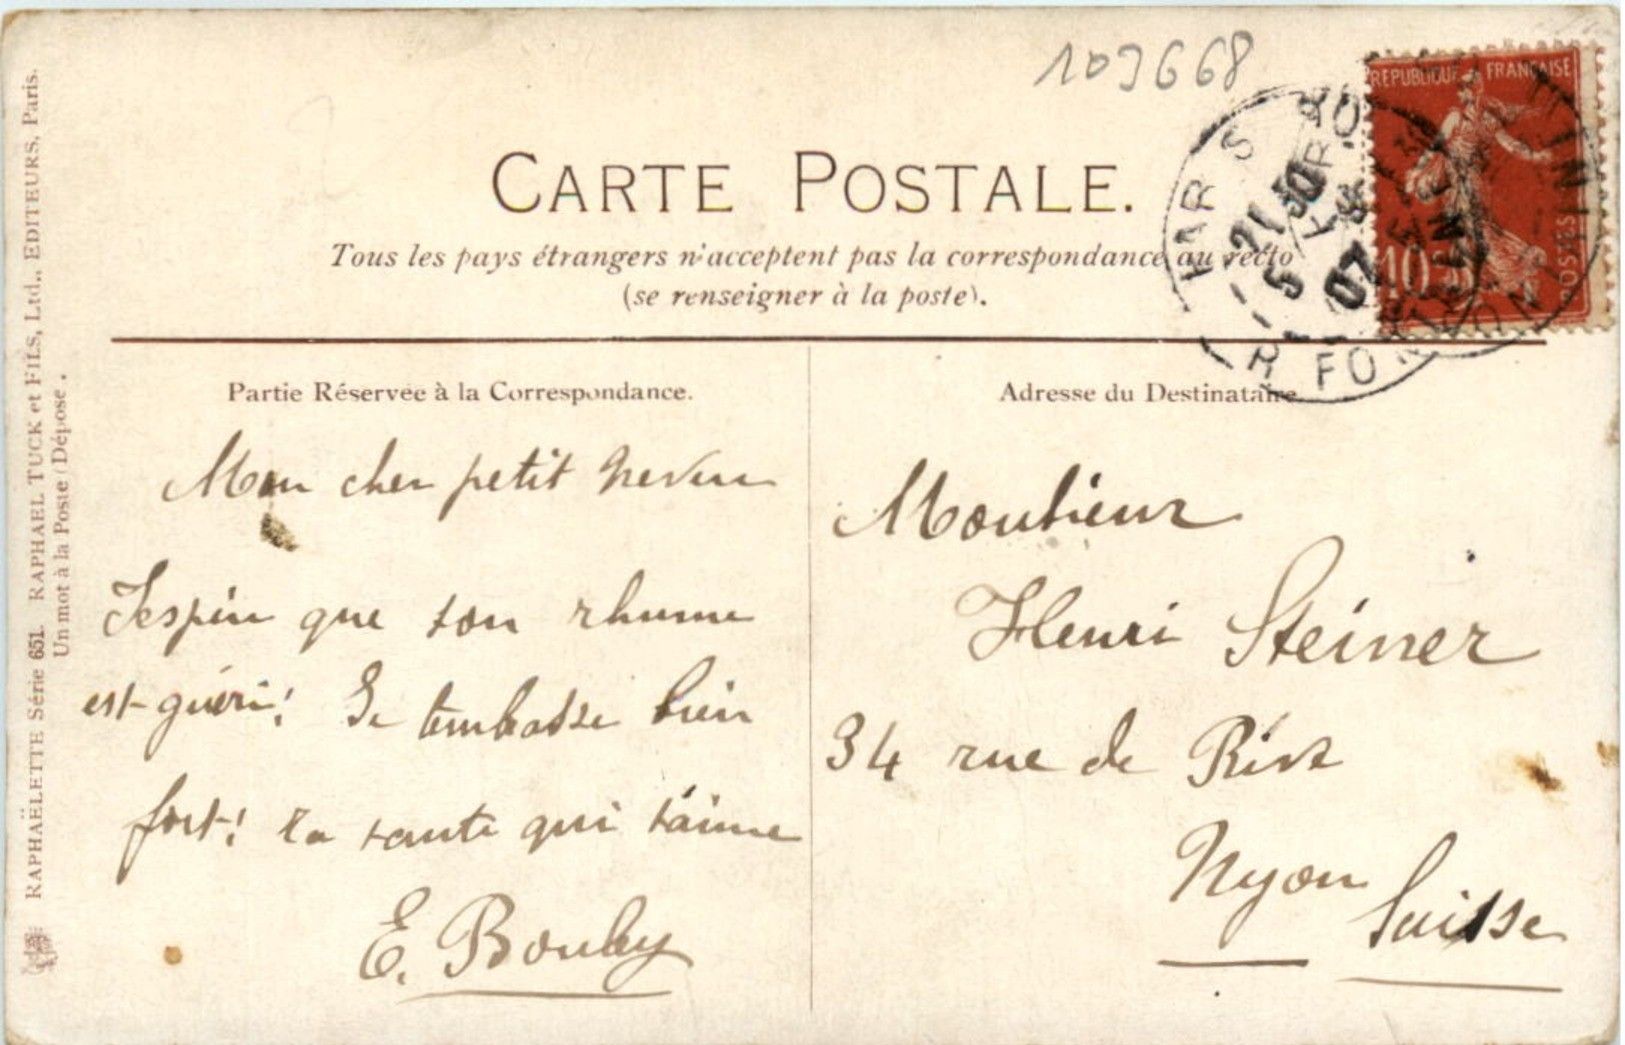 103668
RÉPUBLIQUE FRANÇAISE
10
POSTES
CARTE POSTALE.
Tous les pays étrangers n'acceptent pas la correspondance au recto
(se renseigner à la poste).
21 30
5
07
Partie Réservée à la Correspondance.
Mon cher petit neveu
J'espère que ton rhume
est guéri! Je t'embrasse bien
fort! ta tante qui t'aime
E. Bouby
Adresse du Destinataire
Monsieur
Henri Steiner
34 rue de Rive
Nyon
Suisse
RAPHAËLETTE Série 651. RAPHAEL TUCK et FILS, Ltd., EDITEURS, Paris.
Un mot à la Poste (Déposé.